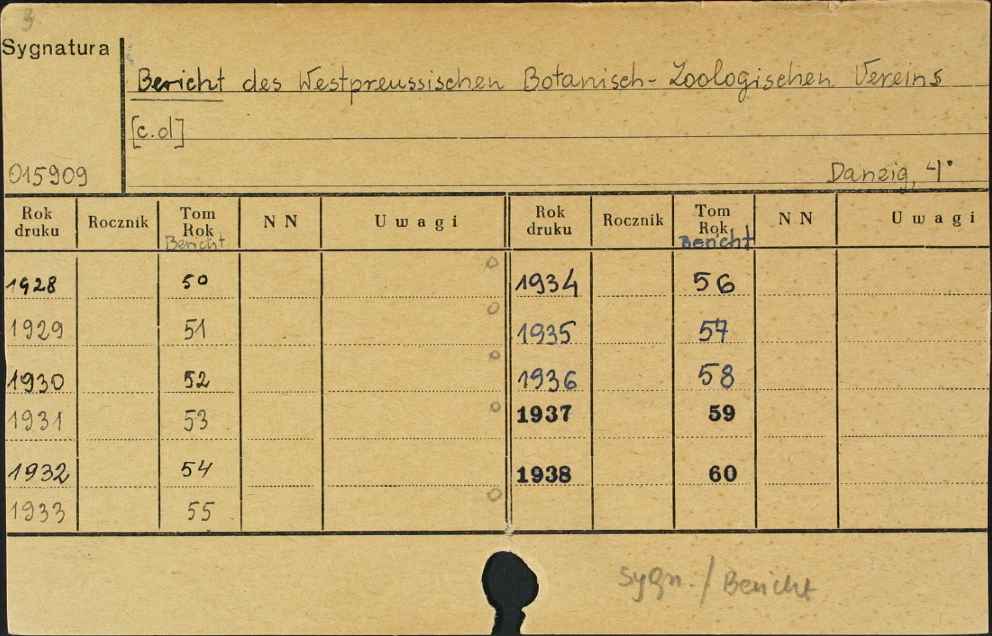 3
Sygnatura
Bericht des Westpreussischen Botanisch-Zoologischen Vereins
[c.d]
015909
Danzig, 4°
Rok druku Rocznik Tom Rok Bericht NN Uwagi Rok druku Rocznik Tom Rok Bericht NN Uwagi
1928 50 1934 56
1929 51 1935 57
1930 52 1936 58
1931 53 1937 59
1932 54 1938 60
1933 55
sygn./Bericht